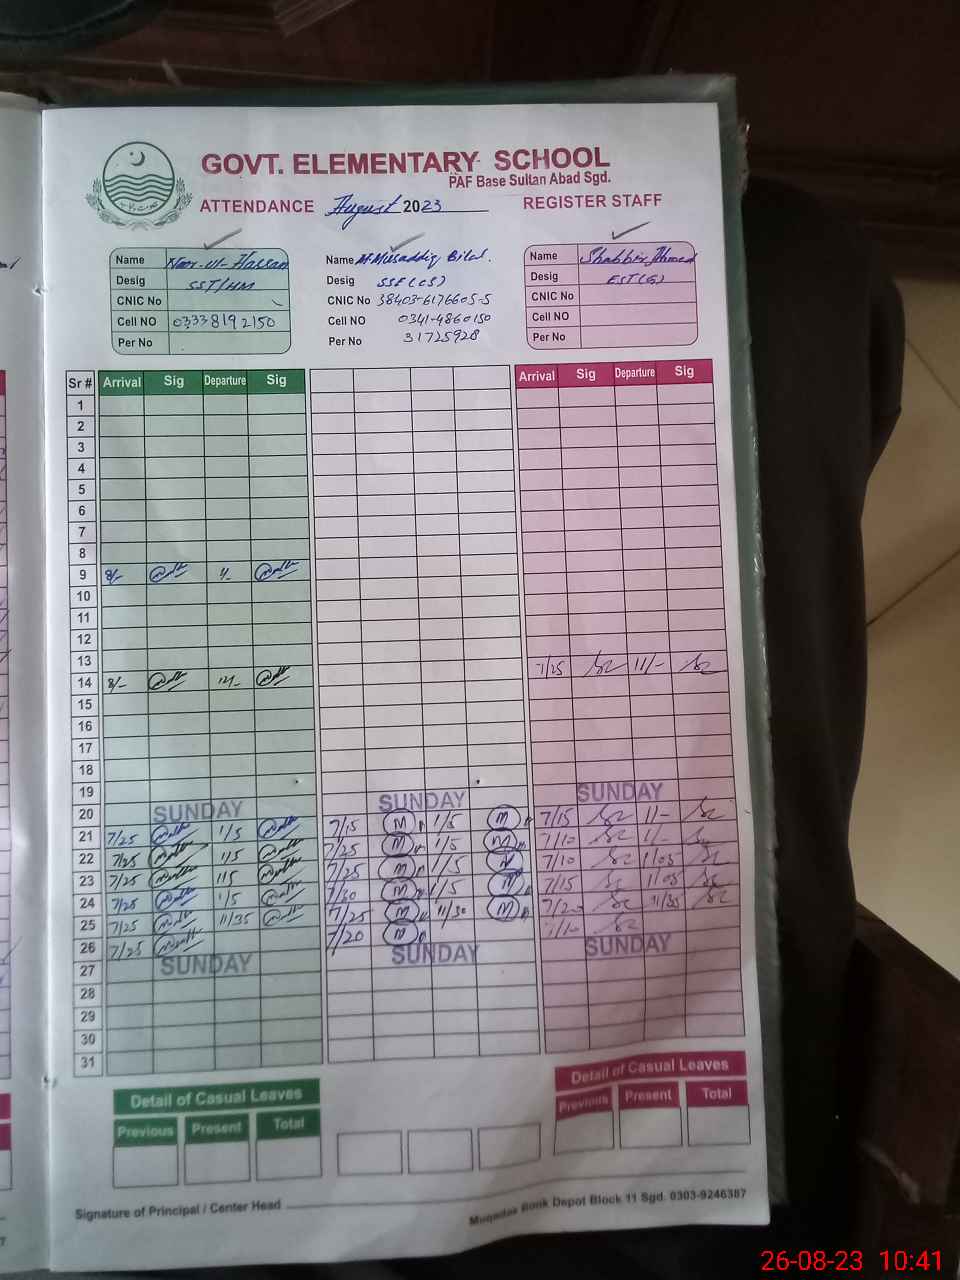 GOVT. ELEMENTARY SCHOOL
PAF Base Sultan Abad Sgd.
ATTENDANCE August 2023 REGISTER STAFF
Name Noor-ul-Hassan
Desig SST/HM
CNIC No
Cell NO 03338192150
Per No
Name M. Musaddiq Bilal.
Desig SSE (CS)
CNIC No 38403-6176605-5
Cell NO 0341-4860150
Per No 31725928
Name Shabbir Ahmed
Desig EST(G)
CNIC No
Cell NO
Per No
Sr # Arrival Sig Departure Sig Arrival Sig Departure Sig
1
2
3
4
5
6
7
8
9 8/- 1/-
10
11
12
13 7/25 11/-
14 8/- 12/-
15
16
17
18
19
20 SUNDAY SUNDAY SUNDAY
21 7/25 1/5 7/15 M 1/5 M 7/15 11/-
22 7/25 1/5 7/25 M 1/5 M 7/10 1/-
23 7/25 1/5 7/25 M 1/5 M 7/10 1/05
24 7/25 1/5 7/30 M 1/5 M 7/15 1/05
25 7/25 11/35 7/25 M 11/30 M 7/20 11/35
26 7/25 7/20 M 7/10
27 SUNDAY SUNDAY SUNDAY
28
29
30
31
Detail of Casual Leaves Detail of Casual Leaves
Previous Present Total Previous Present Total
Signature of Principal / Center Head
Muqadas Book Depot Block 11 Sgd. 0303-9246387
26-08-23 10:41